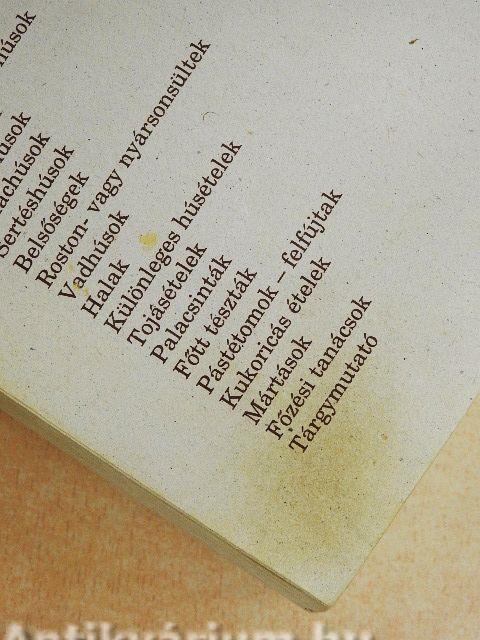 Sertéshúsok
Belsőségek
Roston- vagy nyársonsültek
Vadhúsok
Halak
Különleges húsételek
Tojásételek
Palacsinták
Főtt tészták
Pástétomok – felfújtak
Kukoricás ételek
Mártások
Főzési tanácsok
Tárgymutató
Antikvárium.hu